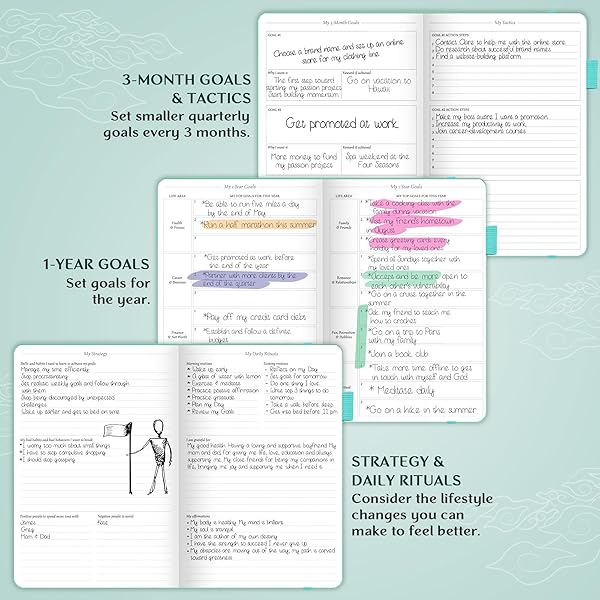 3-MONTH GOALS
& TACTICS
Set smaller quarterly
goals every 3 months.
My 3 Month Goals
GOAL #1
Choose a brand name and set up an online
store for my clothing line
Why I want it
The first step toward
starting my passion project
Start building momentum
Reward if achieved
Go on vacation to
Hawaii
GOAL #2
Get promoted at work
Why I want it
More money to fund
my passion project
Reward if achieved
Spa weekend at the
Four Seasons
My Tactics
GOAL #1 ACTION STEPS
1 Contact Claire to help me with the online store
2 Do research about successful brand names
3 Find a website-building platform
GOAL #2 ACTION STEPS
1 Make my boss aware I want a promotion
2 Increase my productivity at work
3 Join career-development courses
1-YEAR GOALS
Set goals for
the year.
My 1-Year Goals
LIFE AREA
MY TOP GOALS FOR THIS YEAR
Health
& Fitness
*Be able to run five miles a day
by the end of May
*Run a half marathon this summer
Career
& Business
*Get promoted at work before
the end of the year
*Partner with more clients by the
end of the quarter
Finance
& Net Worth
*Pay off my credit card debt
*Establish and follow a definite
budget
My 1-Year Goals
LIFE AREA
MY TOP GOALS FOR THIS YEAR
Family
& Friends
*Take a cooking class with the
family during vacation
*Visit my friend's hometown
in August
*Create greeting cards every
holiday for my loved ones
Romance
& Relationships
*Spend all Sundays together with
my loved ones
*Accept and be more open to
each other's vulnerability
*Go on a cruise together in the
summer
Fun, Recreation
& Hobbies
*Ask my friend to teach me
how to crochet
*Go on a trip to Paris
with my family
*Join a book club
*Take more time offline to get
in touch with myself and God
* Meditate daily
*Go on a hike in the summer
My Strategy
Skills and habits I need to learn to achieve my goals
Manage my time efficiently
Stop procrastinating
Set realistic weekly goals and follow through
with them
Stop being discouraged by unexpected
challenges
Wake up earlier and get to bed on time
My bad habits and bad behaviors I want to break
• I worry too much about small things
• I have to stop compulsive shopping
• I should stop gossiping
Positive people to spend more time with
James
Greg
Mom & Dad
Negative people to avoid
Kate
My Daily Rituals
Morning routines
• Wake up early
• A glass of water with lemon
• Exercise & meditate
• Practice positive affirmation
• Practice gratitude
• Plan my Day
• Review my Goals
Evening routines
• Reflect on my Day
• Set goals for tomorrow
• Do one thing I love
• Write top 3 things to do
tomorrow
• Take a walk before sleep
• Get into bed before 11 pm
I am grateful for
My good health. Having a loving and supportive boyfriend. My
mom and dad for giving me life, love, education and always
supporting me. My close friends for being my companions in
life, bringing me joy and supporting me when I need it.
My affirmations
• My body is healthy. My mind is brilliant.
• My soul is tranquil
• I am the author of my own destiny
• I have the strength to succeed. I never give up.
• My obstacles are moving out of the way; my path is carved
toward greatness
STRATEGY &
DAILY RITUALS
Consider the lifestyle
changes you can
make to feel better.